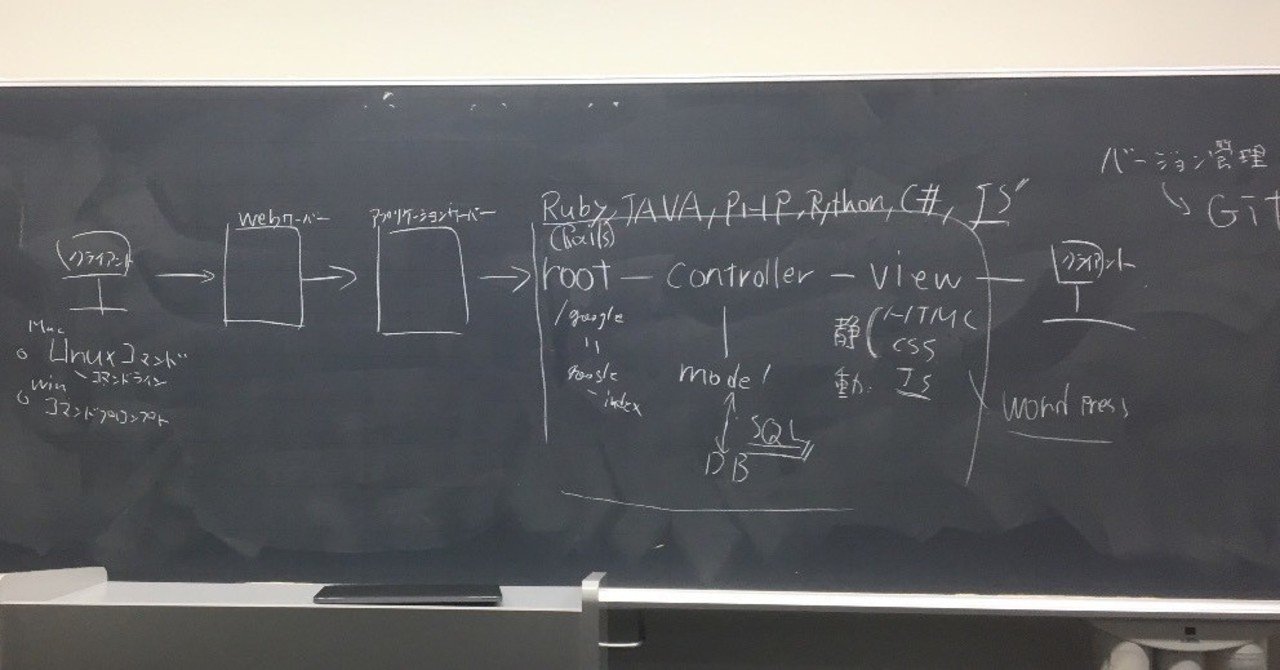 バージョン管理
GIT
Ruby, JAVA, PHP, Python, C#, JS
(Rails)
Webサーバー
アプリケーションサーバー
クライアント
root ― controller ― view
クライアント
/google
〃
google
index
model
SQL
DB
静 HTML
CSS
動 JS
Word Press
Mac
Linuxコマンド
コマンドライン
Win
コマンドプロンプト